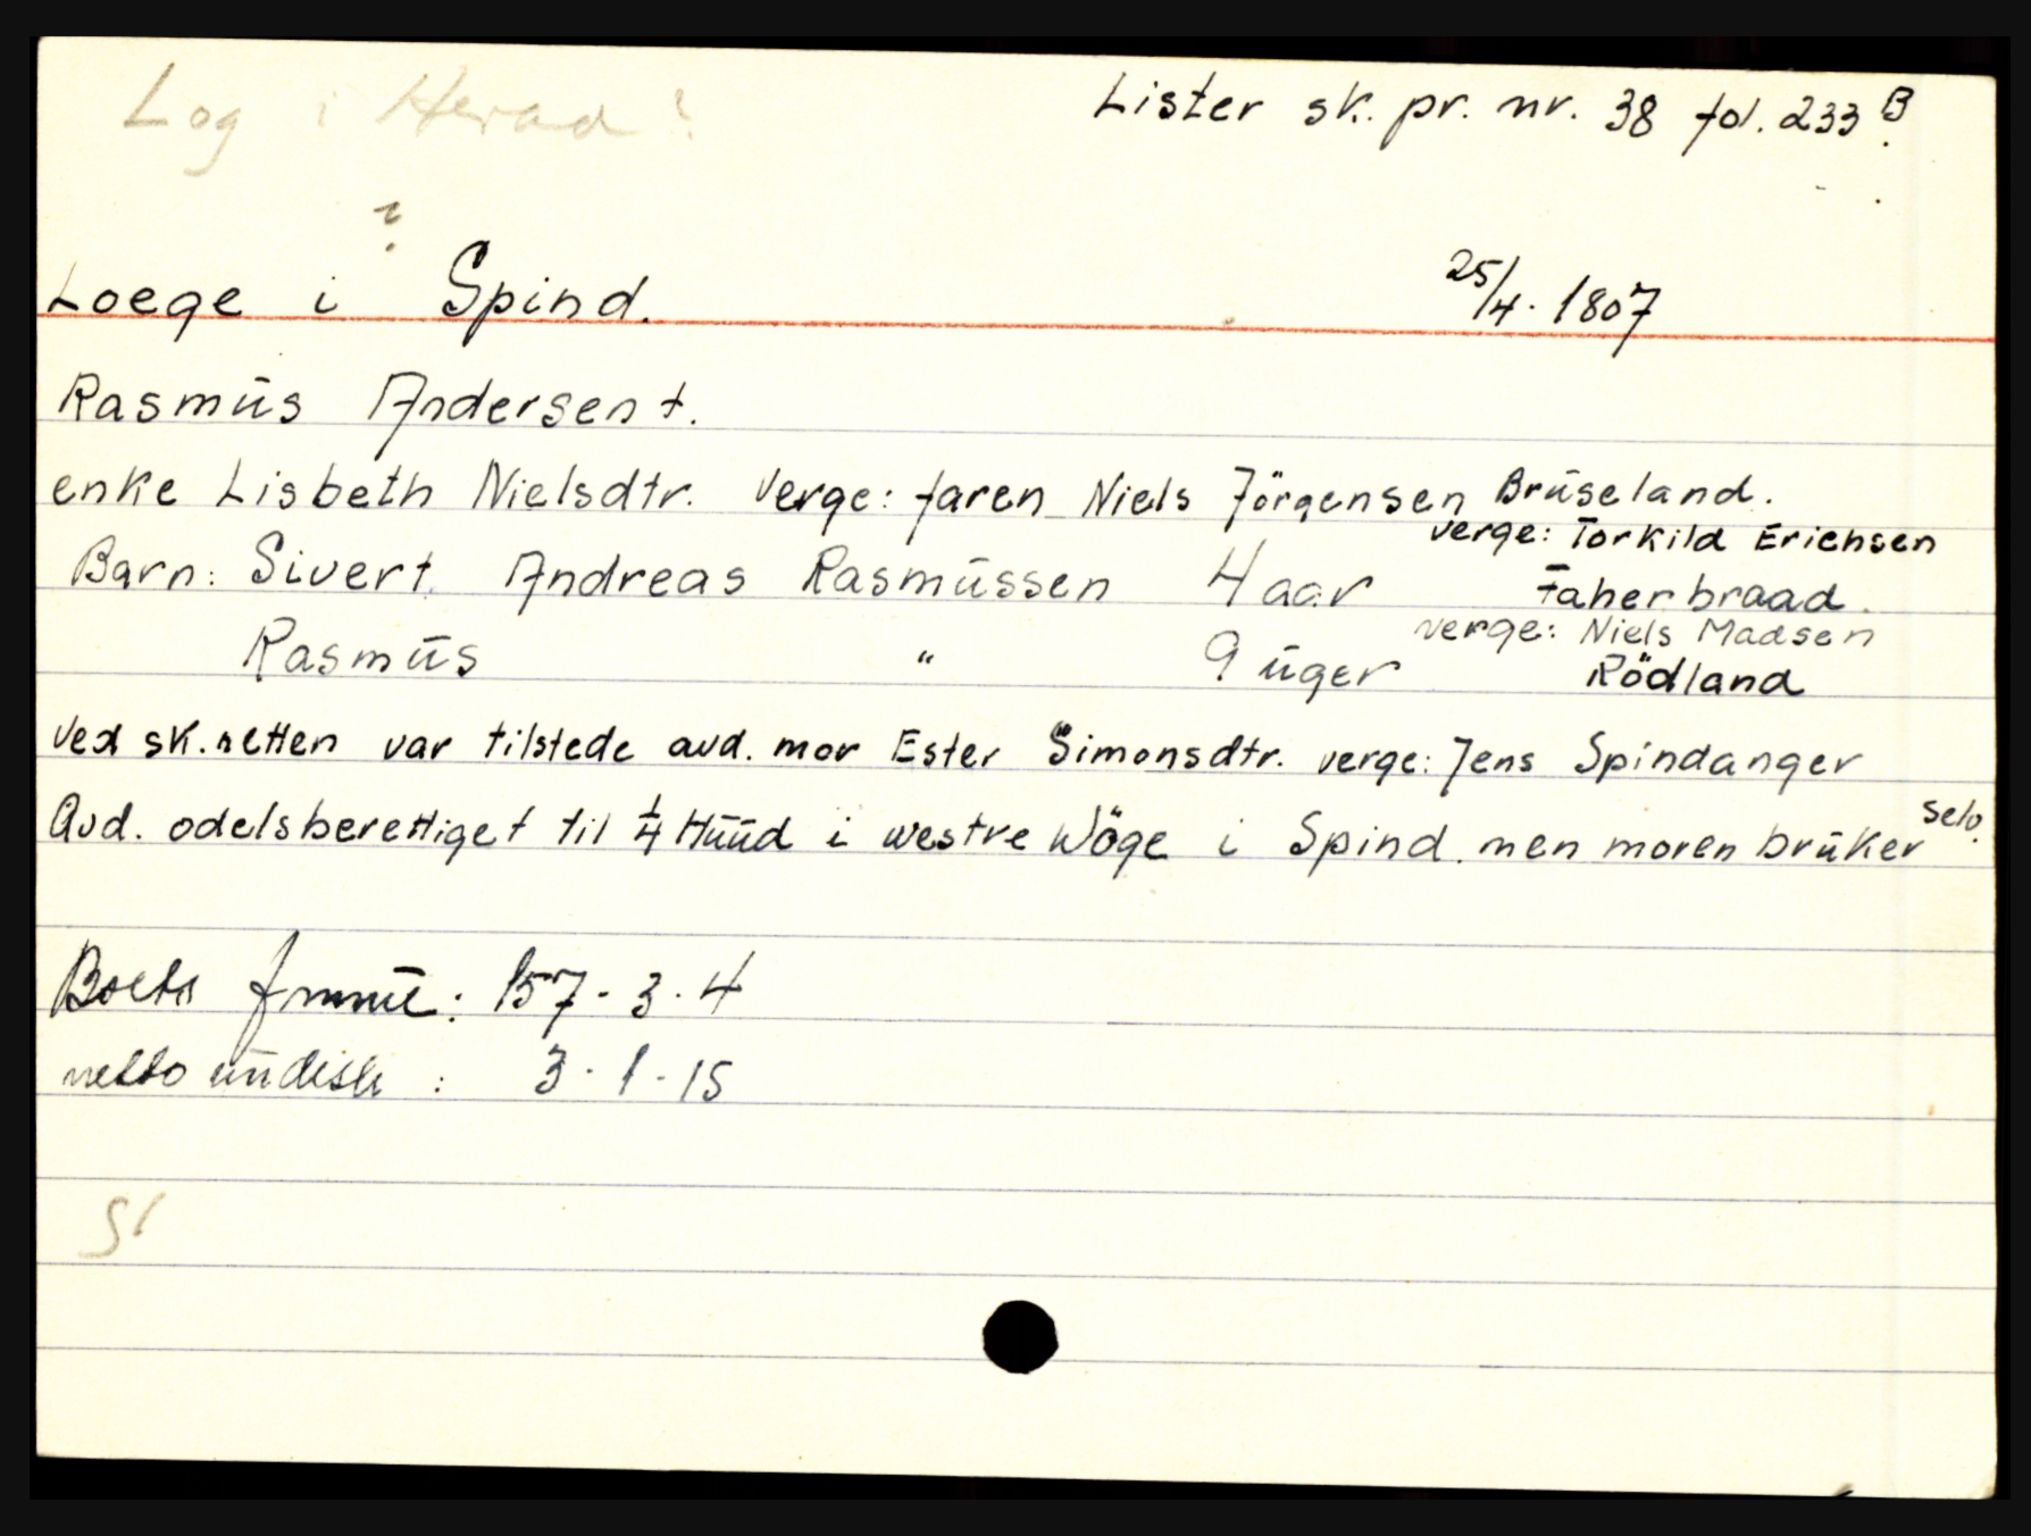 Log i Herad ?
Lister sk. pr. nr. 38 fol. 233 B.
?
Loege i Spind. 25/4. 1807
Rasmūs Andersen †.
enke Lisbeth Nielsdtr. Verge: faren Niels Jörgensen Brūseland.
Barn: Sivert Andreas Rasmūssen 4 aar verge: Torkild Erichsen Faherbraad.
Rasmūs " 9 ūger verge: Niels Madsen Rödland
Ved sk.retten var tilstede avd. mor Ester Simonsdtr. verge: Jens Spindanger
Avd. odelsberettiget til 1/4 Hūūd i westre Wöge i Spind. men moren brūker selv.
Boets : 157 - 3 - 4
netto : 3 - 1 - 15